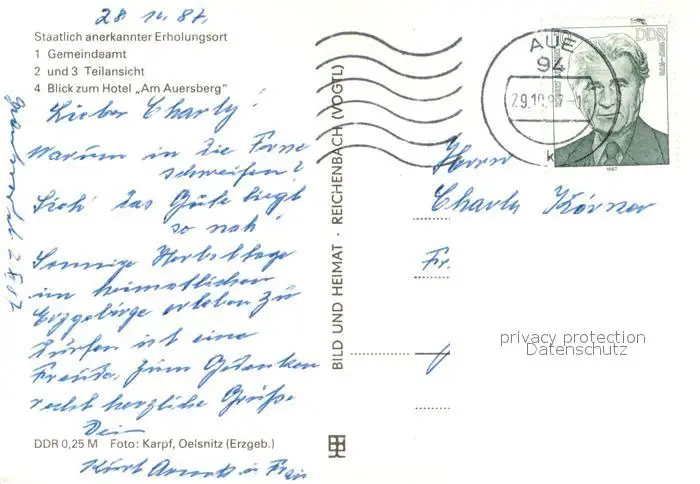 28.10.87.
Staatlich anerkannter Erholungsort
1 Gemeindeamt
2 und 3 Teilansicht
4 Blick zum Hotel „Am Auersberg"
Lieber Charly!
Warum in die Ferne
schweifen?
Sieh' das Gute liegt
so nah'
Sonnige Herbsttage
im heimatlichen
Erzgebirge erleben zu
dürfen ist eine
Freude. Zum Gedenken
recht herzliche Grüße
Dein
Kurt u. Frau
DDR 0,25 M Foto: Karpf, Oelsnitz (Erzgeb.)
BILD UND HEIMAT · REICHENBACH (VOGTL)
AUE
94
29.10.87
k
DDR
1987
Herrn
Charly Körner
Fr.
privacy protection
Datenschutz